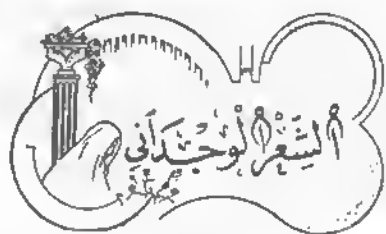 الشِّعْرُ الوِجْدَاني